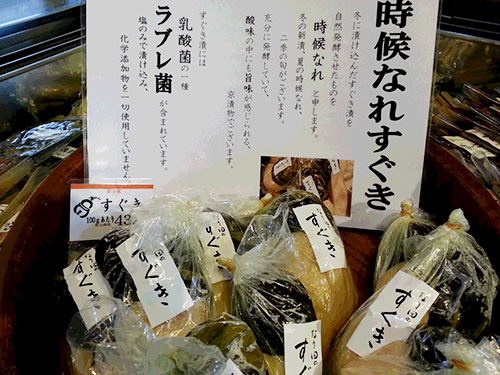 時候なれすぐき
冬に漬け込んだすぐき漬を
自然発酵させたものを
時候なれと申します。
冬の新漬、夏の時候なれ、
二季の旬がございます。
充分に発酵していて、
酸味の中にも旨味が感じられる、
京漬物でございます。
すぐき漬には
乳酸菌の一種
ラブレ菌が含まれています。
塩のみで漬け込み、
化学添加物を一切使用していません
すぐき
100gあたり43
すぐき
すぐき
すぐき
すぐき
なり田の
すぐき
なり田の
すぐき